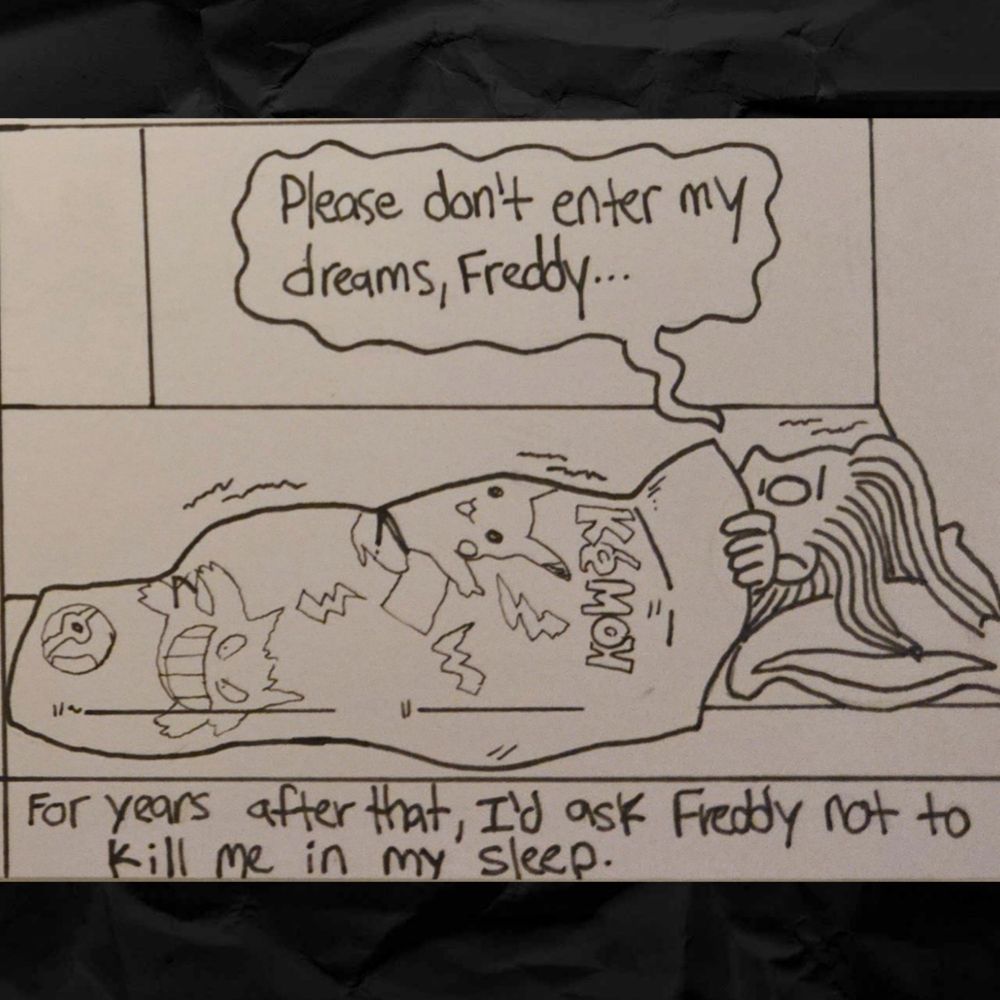 Please don't enter my
dreams, Freddy...
KéMON
For years after that, I'd ask Freddy not to
kill me in my sleep.